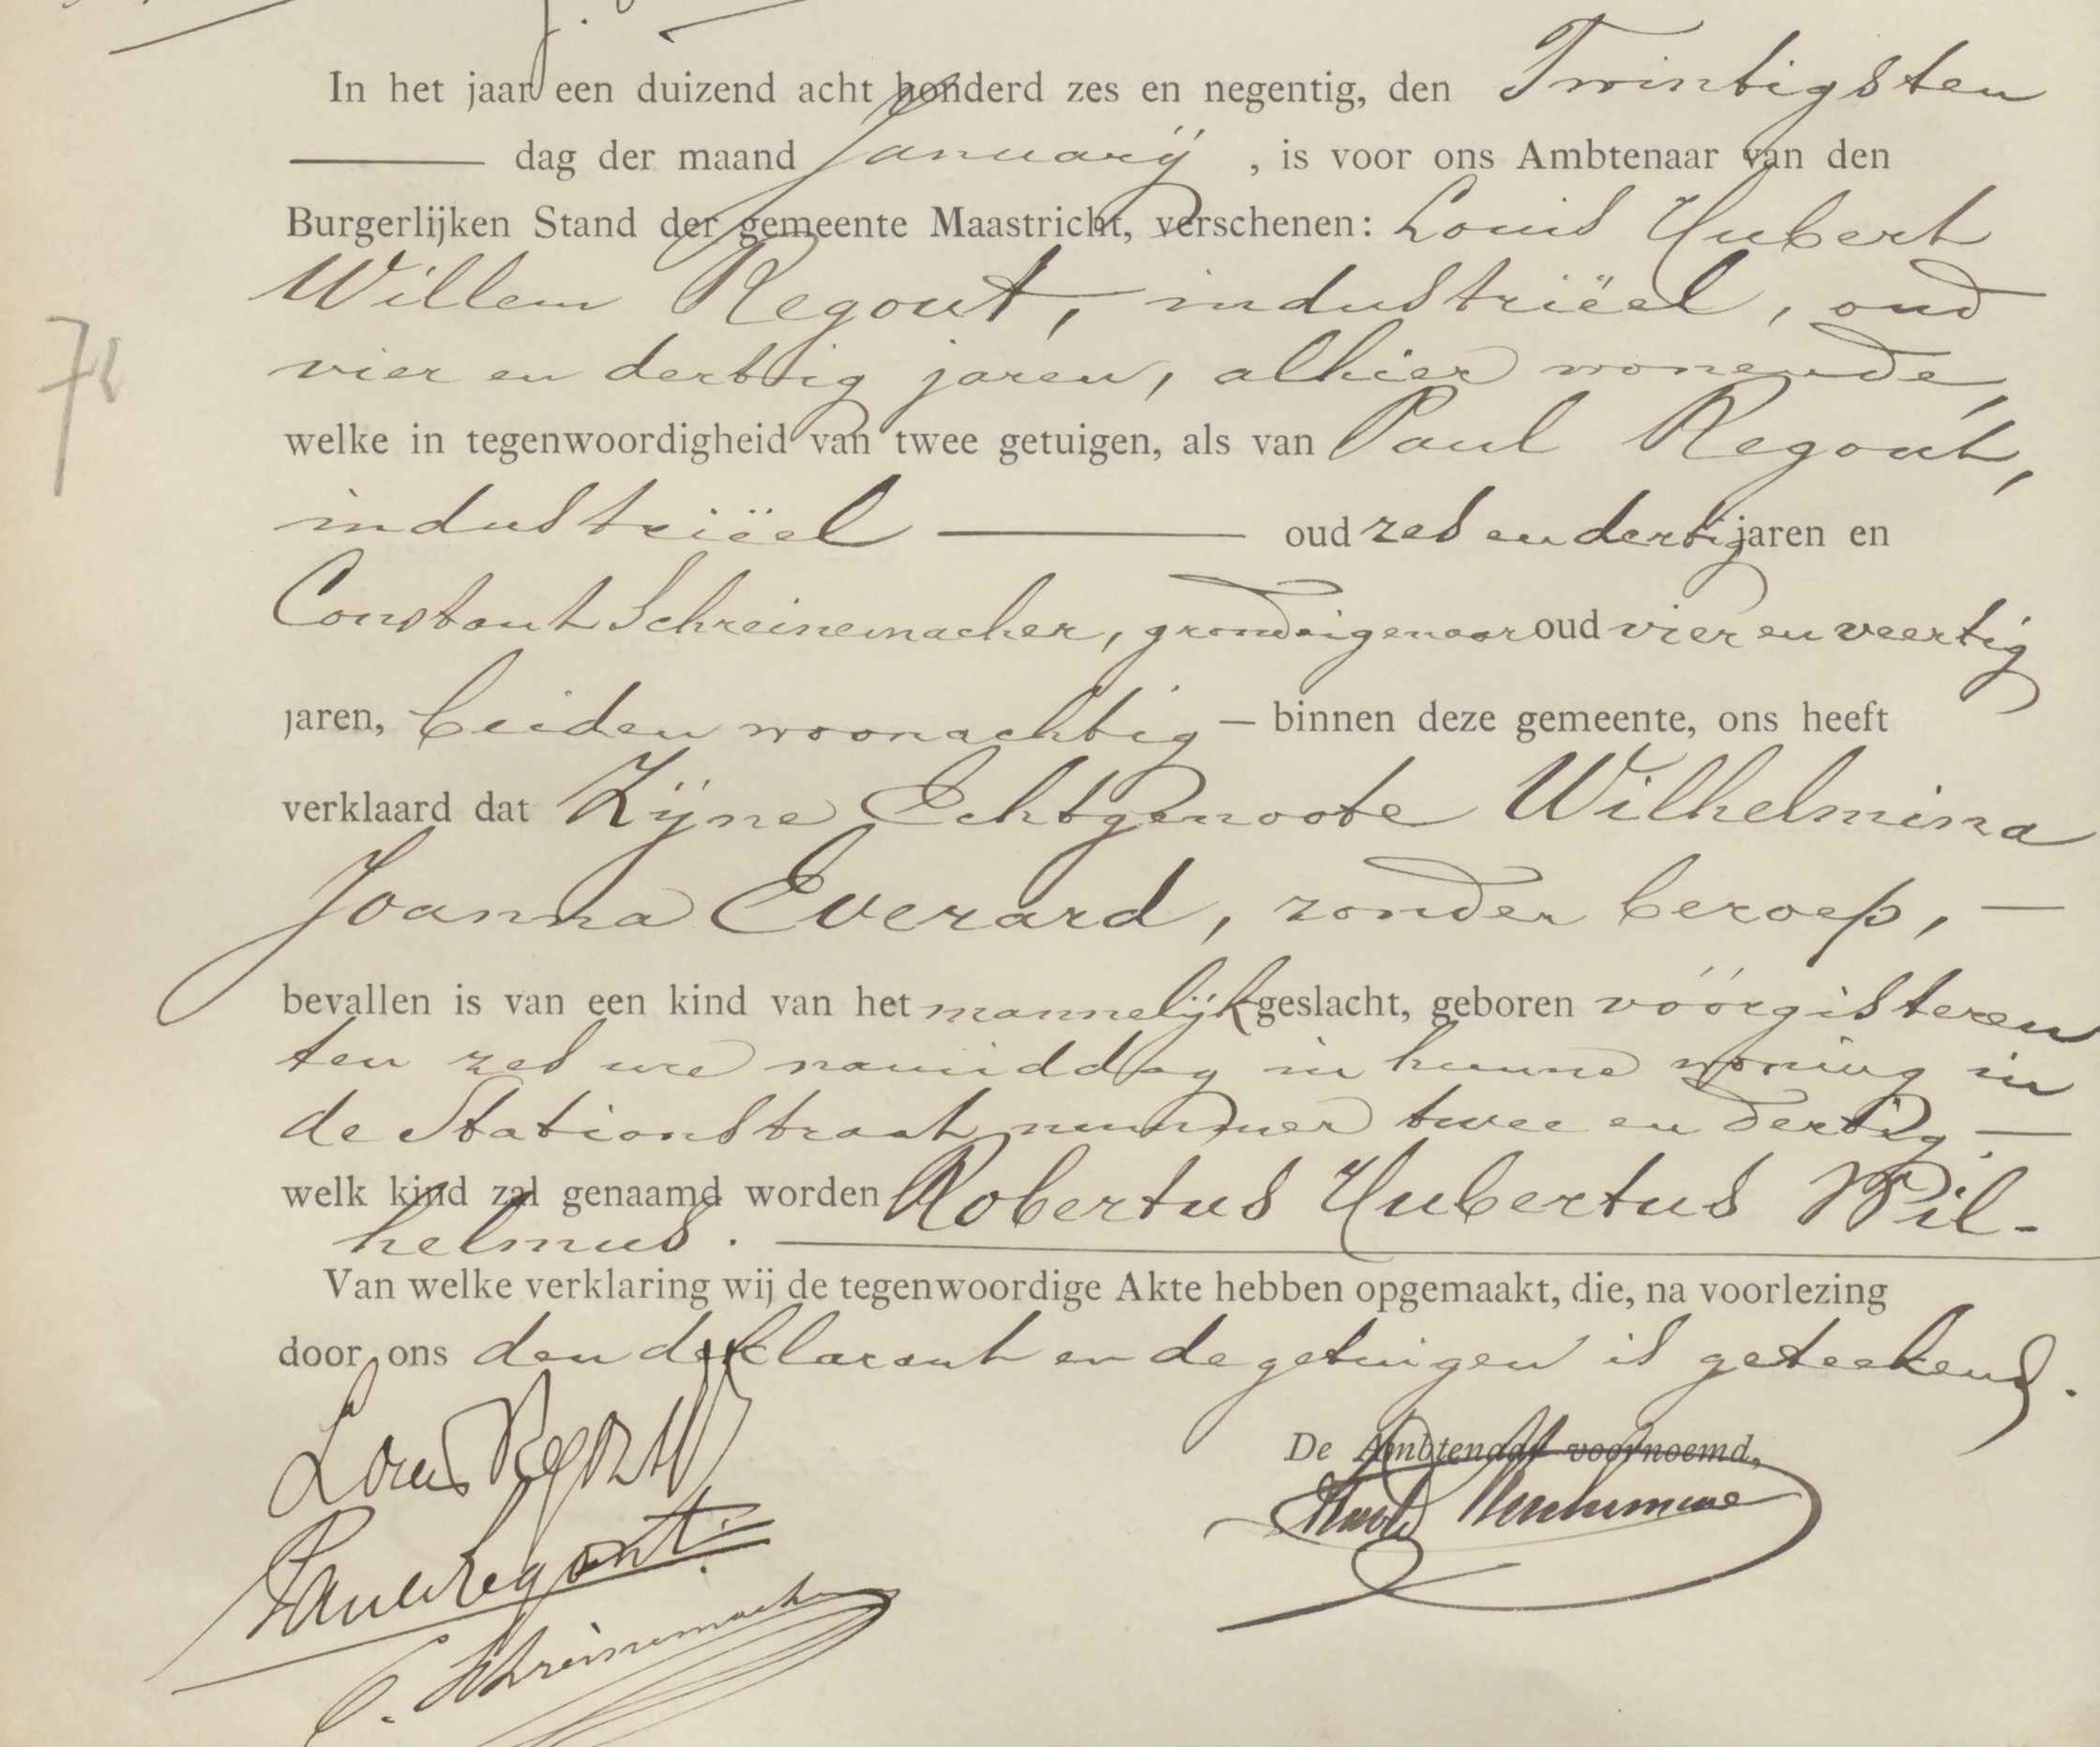 In het jaar een duizend acht honderd zes en negentig, den Twintigsten
dag der maand Januarÿ , is voor ons Ambtenaar van den
Burgerlijken Stand der gemeente Maastricht, verschenen: Louis Hubert
Willem Regout, industriëel, oud
vier en dertig jaren, alhier wonende,
72
welke in tegenwoordigheid van twee getuigen, als van Paul Regout,
industriëel oud zes en dertig jaren en
Constant Schreinemacher, grondeigenaar oud vier en veertig
jaren, beiden woonachtig – binnen deze gemeente, ons heeft
verklaard dat Zÿne Echtgenoote Wilhelmina
Joanna Everard, zonder beroep, —
bevallen is van een kind van het mannelijk geslacht, geboren vóórgisteren
ten zes ure namiddag in hunne woning in
de Stationstraat nummer twee en dertig —
welk kind zal genaamd worden Robertus Hubertus Wil-
helmus.
Van welke verklaring wij de tegenwoordige Akte hebben opgemaakt, die, na voorlezing
door ons den deklarant en de getuigen is geteekend.
De Ambtenaar voornoemd,
Louis Regout
Paul Regout
C. Schreinemacher